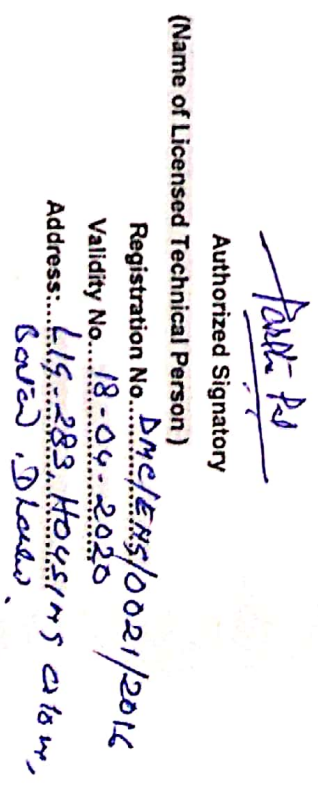 Partha Pal
Authorized Signatory
(Name of Licensed Technical Person)
Registration No....DMC/ENG/0021/2016
Validity No....18-04-2020
Address:....LIG-283, HOUSING Colony,